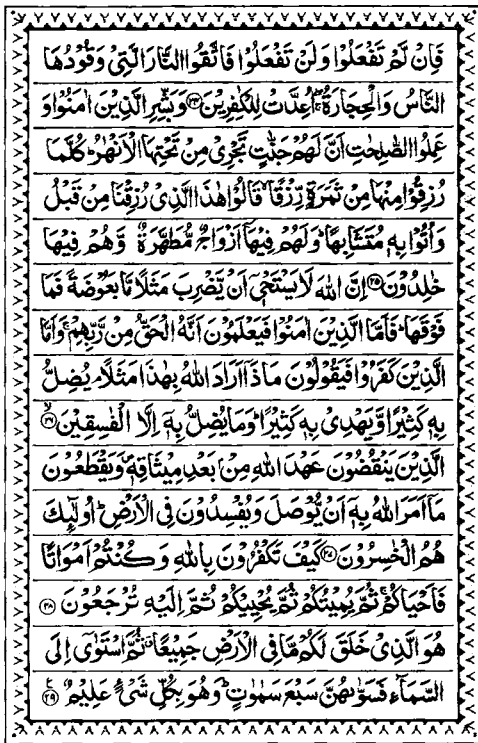 فَاِنْ لَّمْ تَفْعَلُوْا وَلَنْ تَفْعَلُوْا فَاتَّقُوا النَّارَ الَّتِیْ وَقُوْدُهَا
النَّاسُ وَالْحِجَارَةُ ۖۚ اُعِدَّتْ لِلْكٰفِرِیْنَ ۝۲۴ وَبَشِّرِ الَّذِیْنَ اٰمَنُوْا وَ
عَمِلُوا الصّٰلِحٰتِ اَنَّ لَهُمْ جَنّٰتٍ تَجْرِیْ مِنْ تَحْتِهَا الْاَنْهٰرُ ؕ كُلَّمَا
رُزِقُوْا مِنْهَا مِنْ ثَمَرَةٍ رِّزْقًا ۙ قَالُوْا هٰذَا الَّذِیْ رُزِقْنَا مِنْ قَبْلُ
وَاُتُوْا بِهٖ مُتَشَابِهًا ؕ وَلَهُمْ فِیْهَاۤ اَزْوَاجٌ مُّطَهَّرَةٌ ۙ وَّهُمْ فِیْهَا
خٰلِدُوْنَ ۝۲۵ اِنَّ اللّٰهَ لَا یَسْتَحْیٖۤ اَنْ یَّضْرِبَ مَثَلًا مَّا بَعُوْضَةً فَمَا
فَوْقَهَا ؕ فَاَمَّا الَّذِیْنَ اٰمَنُوْا فَیَعْلَمُوْنَ اَنَّهُ الْحَقُّ مِنْ رَّبِّهِمْ ۚ وَاَمَّا
الَّذِیْنَ كَفَرُوْا فَیَقُوْلُوْنَ مَاذَاۤ اَرَادَ اللّٰهُ بِهٰذَا مَثَلًا ۘ یُضِلُّ
بِهٖ كَثِیْرًا وَّیَهْدِیْ بِهٖ كَثِیْرًا ؕ وَمَا یُضِلُّ بِهٖۤ اِلَّا الْفٰسِقِیْنَ ۝۲۶ۙ
الَّذِیْنَ یَنْقُضُوْنَ عَهْدَ اللّٰهِ مِنْۢ بَعْدِ مِیْثَاقِهٖ ۪ وَیَقْطَعُوْنَ
مَاۤ اَمَرَ اللّٰهُ بِهٖۤ اَنْ یُّوْصَلَ وَیُفْسِدُوْنَ فِی الْاَرْضِ ؕ اُولٰٓئِكَ
هُمُ الْخٰسِرُوْنَ ۝۲۷ كَیْفَ تَكْفُرُوْنَ بِاللّٰهِ وَكُنْتُمْ اَمْوَاتًا
فَاَحْیَاكُمْ ۚ ثُمَّ یُمِیْتُكُمْ ثُمَّ یُحْیِیْكُمْ ثُمَّ اِلَیْهِ تُرْجَعُوْنَ ۝۲۸
هُوَ الَّذِیْ خَلَقَ لَكُمْ مَّا فِی الْاَرْضِ جَمِیْعًا ۗ ثُمَّ اسْتَوٰۤی اِلَی
السَّمَآءِ فَسَوّٰىهُنَّ سَبْعَ سَمٰوٰتٍ ؕ وَهُوَ بِكُلِّ شَیْءٍ عَلِیْمٌ ۝۲۹